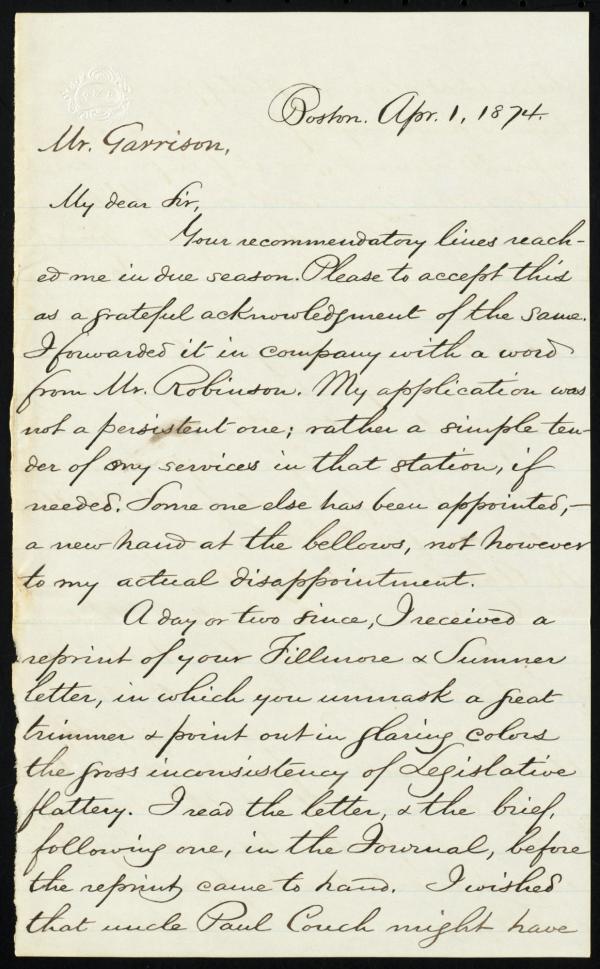 Boston. Apr. 1, 1874.
Mr. Garrison,
My dear Sir,
Your recommendatory lines reach-
ed me in due season. Please to accept this
as a grateful acknowledgment of the same.
I forwarded it in company with a word
from Mr. Robinson. My application was
not a persistent one; rather a simple ten-
der of my services in that station, if
needed. Some one else has been appointed,—
a new hand at the bellows, not however
to my actual disappointment.
A day or two since, I received a
reprint of your Fillmore & Sumner
letter, in which you unmask a great
trimmer & point out in glaring colors
the gross inconsistency of Legislative
flattery. I read the letter, & the brief,
following one, in the Journal, before
the reprint came to hand. I wished
that uncle Paul Couch might have